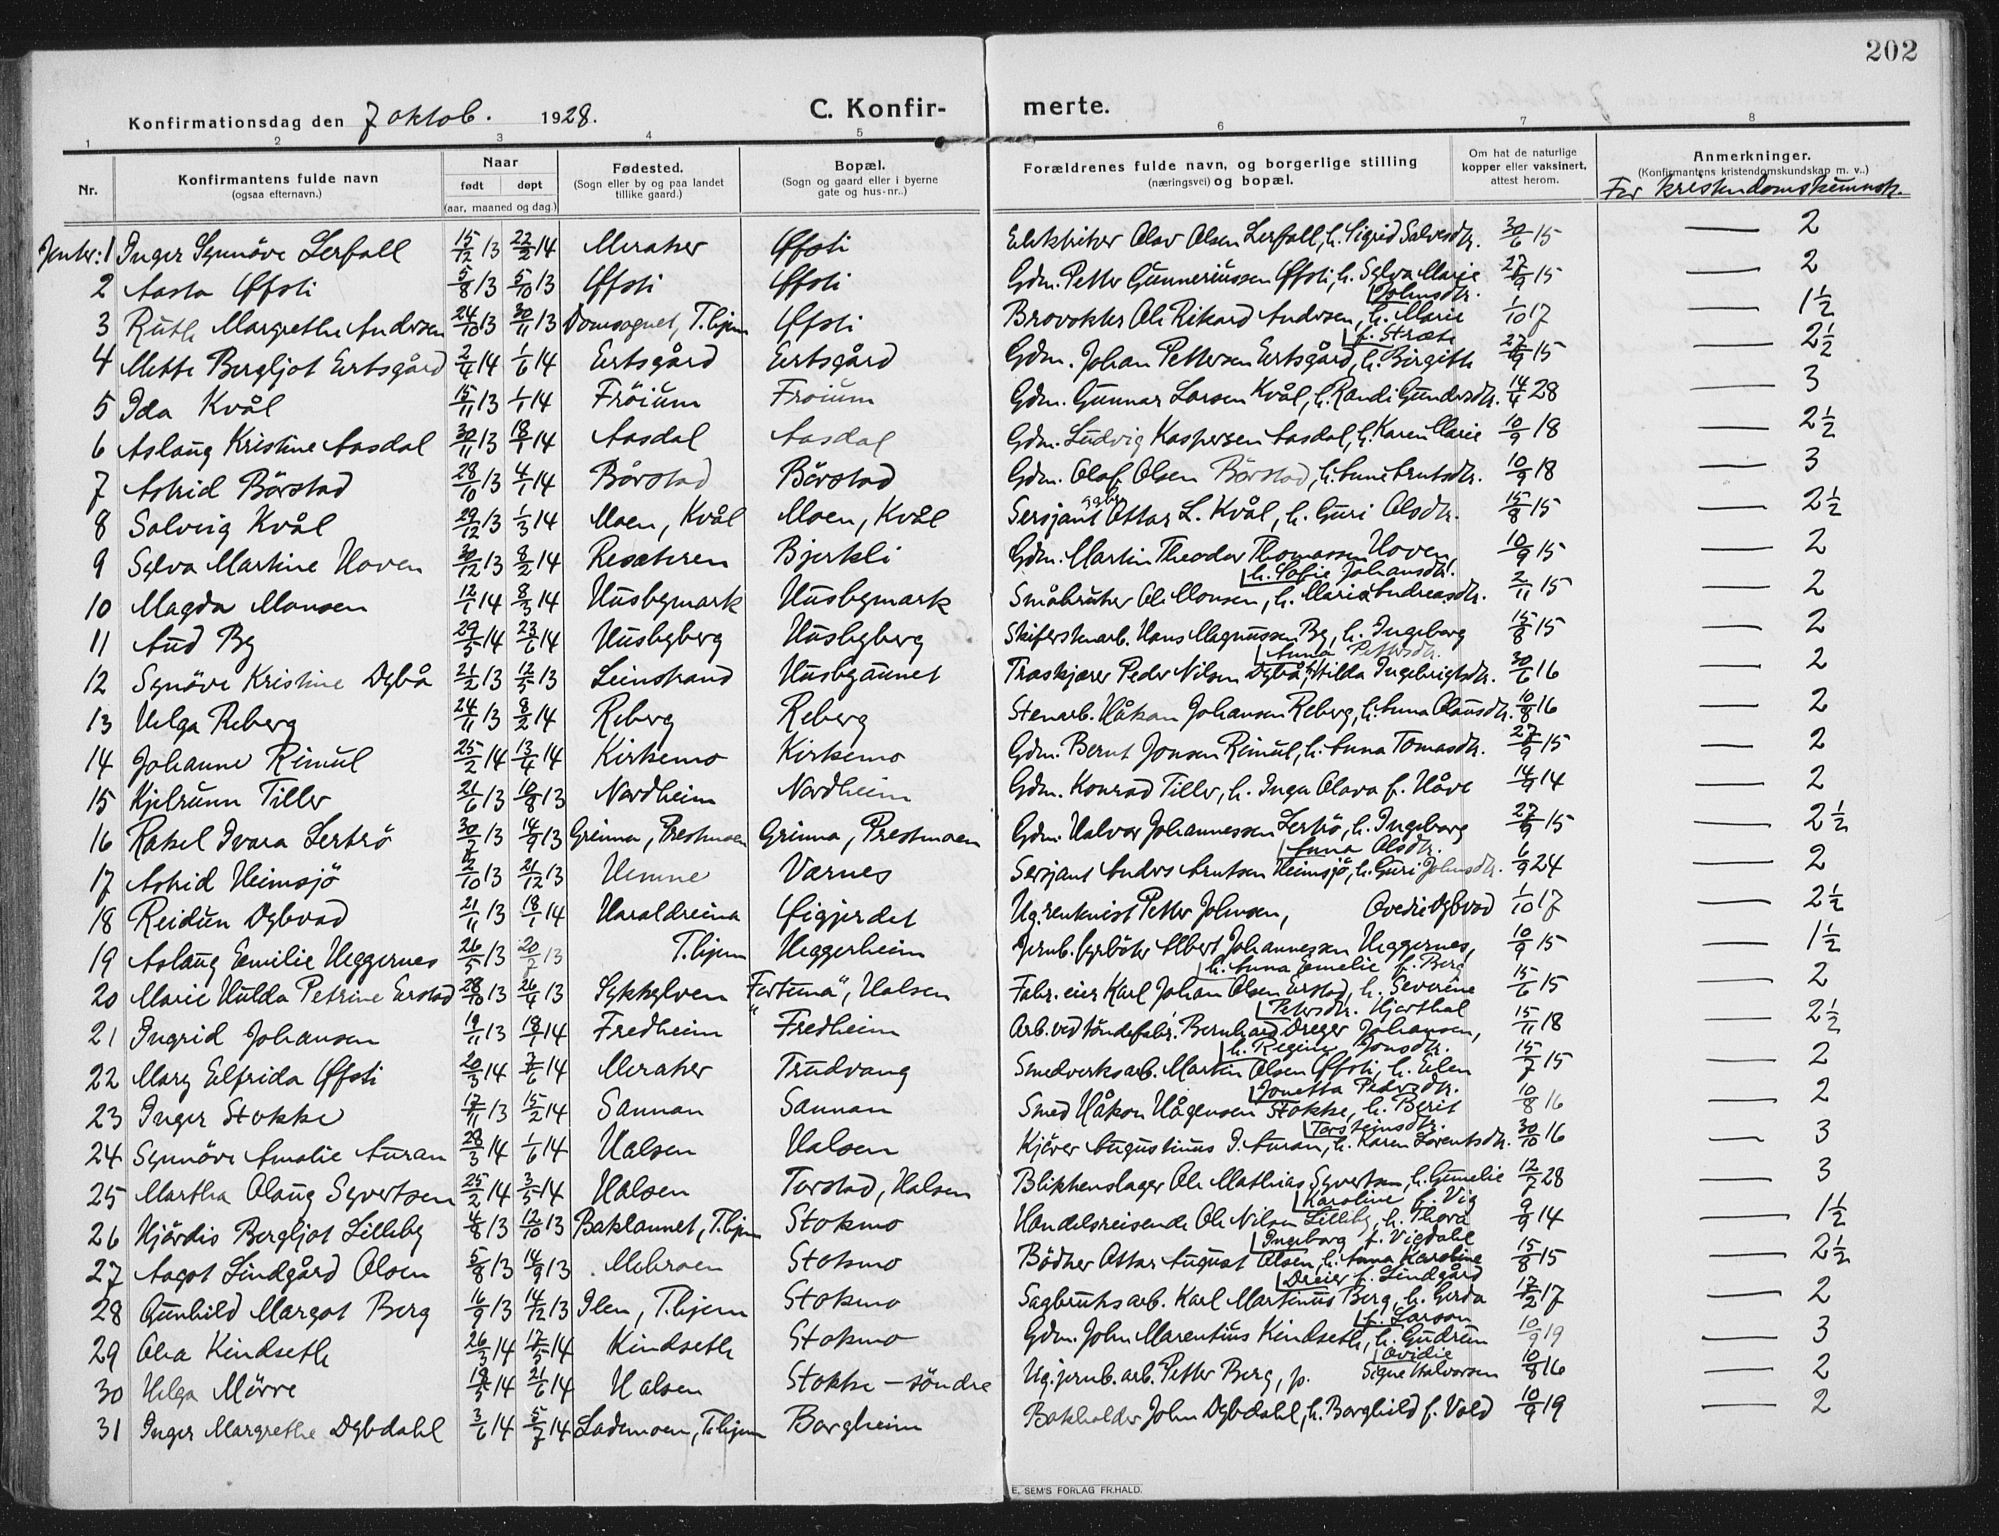 202
Konfirmationsdag den 7 oktob. 1928.
C. Konfirmerte.
1 2 3 4 5 6 7 8
Nr.
Konfirmantens fulde navn
(ogsaa efternavn.)
Naar
født døpt
(aar, maaned og dag.)
Fødested.
(Sogn eller by og paa landet
tillike gaard.)
Bopæl.
(Sogn og gaard eller i byerne
gate og hus-nr..)
Forældrenes fulde navn, og borgerlige stilling
(næringsvei) og bopæl.
Om hat de naturlige
kopper eller vaksinert,
attest herom.
Anmerkninger.
(Konfirmantens kristendomskundskap m. v..)
For kristendomskunnsk.
Jenter: 1 Inger Synnöve Lerfall 15/12 13 22/2 14 Meraker Øfsti Elektriker Olav Olsen Lerfall, h. Sigrid Salvesdtr. 30/6 15 — 2
2 Aasta Øfsti 5/8 13 5/10 13 Øfsti Øfsti Gdm. Petter Gunneriussen Øfsti, h. Sylva Marie Johnsdtr. 27/9 15 — 2
3 Ruth Margrethe Andersen 24/10 13 30/11 13 Domsognet, T.hjem Øfsti Brovokter Ole Rikard Andersen, h. Marie f. Stræte 1/10 17 — 1½
4 Mette Bergljot Ertsgård 2/4 14 1/6 14 Ertsgård Ertsgård Gdm. Johan Pettersen Ertsgård, h. Birgitte 27/9 15 — 2½
5 Ida Kvål 15/11 13 1/1 14 Fröium Fröium Gdm. Gunnar Larsen Kvål, h. Randi Gundersdtr. 14/4 28 — 3
6 Aslaug Kristine Aasdal 30/11 13 18/1 14 Aasdal Aasdal Gdm. Ludvig Kaspersen Aasdal, h. Karen Marie 10/9 18 — 2½
7 Astrid Börstad 28/10 13 4/1 14 Börstad Börstad Gdm. Olaf Olsen Börstad, h. Anne Arntsdtr. 10/9 18 — 3
8 Solveig Kvål 29/12 13 1/3 14 Moen, Kvål Moen, Kvål Sersjant Ottar L. Kvål, h. Guri Olsdtr. 15/8 15 — 2½
9 Sylva Martine Hoven 30/12 13 8/2 14 Resæteren Bjerkli Gdm. Martin Theodor Thomassen Hoven, h. Sofie Johansdtr. 10/9 15 — 2
10 Magda Monsen 12/1 14 8/3 14 Husbymark Husbymark Småbruker Ole Monsen, h. Marie Andreasdtr. 2/11 15 — 2
11 Aud By 29/3 14 23/6 14 Husbyberg Husbyberg Skiferstenarb. Hans Magnussen By, h. Ingeborg Anna Pettersdtr. 15/8 15 — 2
12 Synöve Kristine Dybå 21/2 13 12/5 13 Leinstrand Husbyaunet Træskjærer Peder Nilsen Dybå, h. Hilda Ingebrigtsdtr. 30/6 16 — 2
13 Helga Reberg 24/11 13 8/2 14 Reberg Reberg Stenarb. Håkon Johansen Reberg, h. Anna Olausdtr. 10/8 16 — 2
14 Johanne Rimul 25/2 14 13/4 14 Kirkemo Kirkemo Gdm. Bernt Jonsen Rimul, h. Anna Tomasdtr. 27/9 15 — 2
15 Kjelrunn Tiller 21/6 13 10/8 13 Nordheim Nordheim Gdm. Konrad Tiller, h. Inga Olava f. Håve 14/9 14 — 2
16 Rakel Ivara Lertrö 30/7 13 14/9 13 Grinna, Prestmoen Grinna, Prestmoen Gdm. Halvor Johannessen Lertrö, h. Ingeborg Anna Olsdtr. 27/9 15 — 2½
17 Astrid Heimsjö 5/10 13 21/12 13 Hemne Værnes Sersjant Anders Arntsen Heimsjö, h. Guri Johnsdtr. 6/9 24 — 2
18 Reidun Dybvad 21/11 13 18/1 14 Haraldreina Øigjerdet Ug. rentenist Petter Johnsen, Ovedie Dybvad 1/10 17 — 2½
19 Aslaug Emilie Heggernes 26/5 13 20/7 13 T.hjem Heggerheim Jernb. fyrböter Albert Johannessen Heggernes, h. Anna Emelie f. Berg 10/9 15 — 1½
20 Marie Hulda Petrine Erstad 28/10 13 26/4 13 Sykkylven "Fortuna", Halsen Fabr. eier Karl Johan Olsen Erstad, h. Severine Petersdtr. Hjorthol 15/6 15 — 2
21 Ingrid Johansen 19/11 13 18/1 14 Fredheim Fredheim Arb. ved töndefabr. Bernhard Dreger Johansen, h. Regine Jonsdtr. 15/11 18 — 2½
22 Mary Elfrida Øfsti 20/3 14 7/6 14 Meraker Trudvang Smedverksarb. Martin Olsen Øfsti, h. Elen Jonetta Petersdtr. 15/7 15 — 2
23 Inger Stokke 17/11 13 15/2 14 Sannan Sannan Smed Håkon Hågensen Stokke, h. Berit Torsteinsdtr. 10/8 16 — 2
24 Synnöve Amalie Auran 28/3 14 1/6 14 Halsen Halsen Kjörer Augustinus I. Auran, h. Karen Lorentsdtr. 30/10 16 — 3
25 Martha Olaug Syvertsen 25/2 14 3/5 14 Halsen Torstad, Halsen Blikkenslager Ole Mathias Syvertsen, h. Gunelie Karoline f. Vig 12/7 28 — 3
26 Hjördis Bergljot Lilleby 4/8 13 12/10 13 Baklannet, T.hjem Stokmo Handelsreisende Ole Nilsen Lilleby, h. Thora Ingeborg f. Vigdahl 9/9 14 — 1½
27 Aagot Lindgård Olsen 5/8 13 14/9 13 Mebroen Stokmo Bödker Ottar August Olsen, h. Anna Karoline Dreier f. Lindgård 15/8 15 — 2½
28 Gunhild Margot Berg 16/9 13 14/12 13 Ilen, T.hjem Stokmo Sagbruksarb. Karl Martinus Berg, h. Gerda f. Larson 17/2 17 — 2
29 Olea Kindseth 26/3 14 17/5 14 Kindseth Stokmo Gdm. John Marentius Kindseth, h. Gudrun Ovidie 10/9 19 — 3
30 Helga Mörre 19/5 14 21/6 14 Halsen Stokke - söndre Ug. jernb. arb. Petter Berg, p. Signe Halvorsen 10/8 16 — 2
31 Inger Margrethe Dybdahl 3/6 14 5/7 14 Lademoen, T.hjem Borgheim Bokholder John Dybdahl, h. Borghild f. Vold 10/9 19 — 2
E. SEM'S FORLAG FR.HALD.